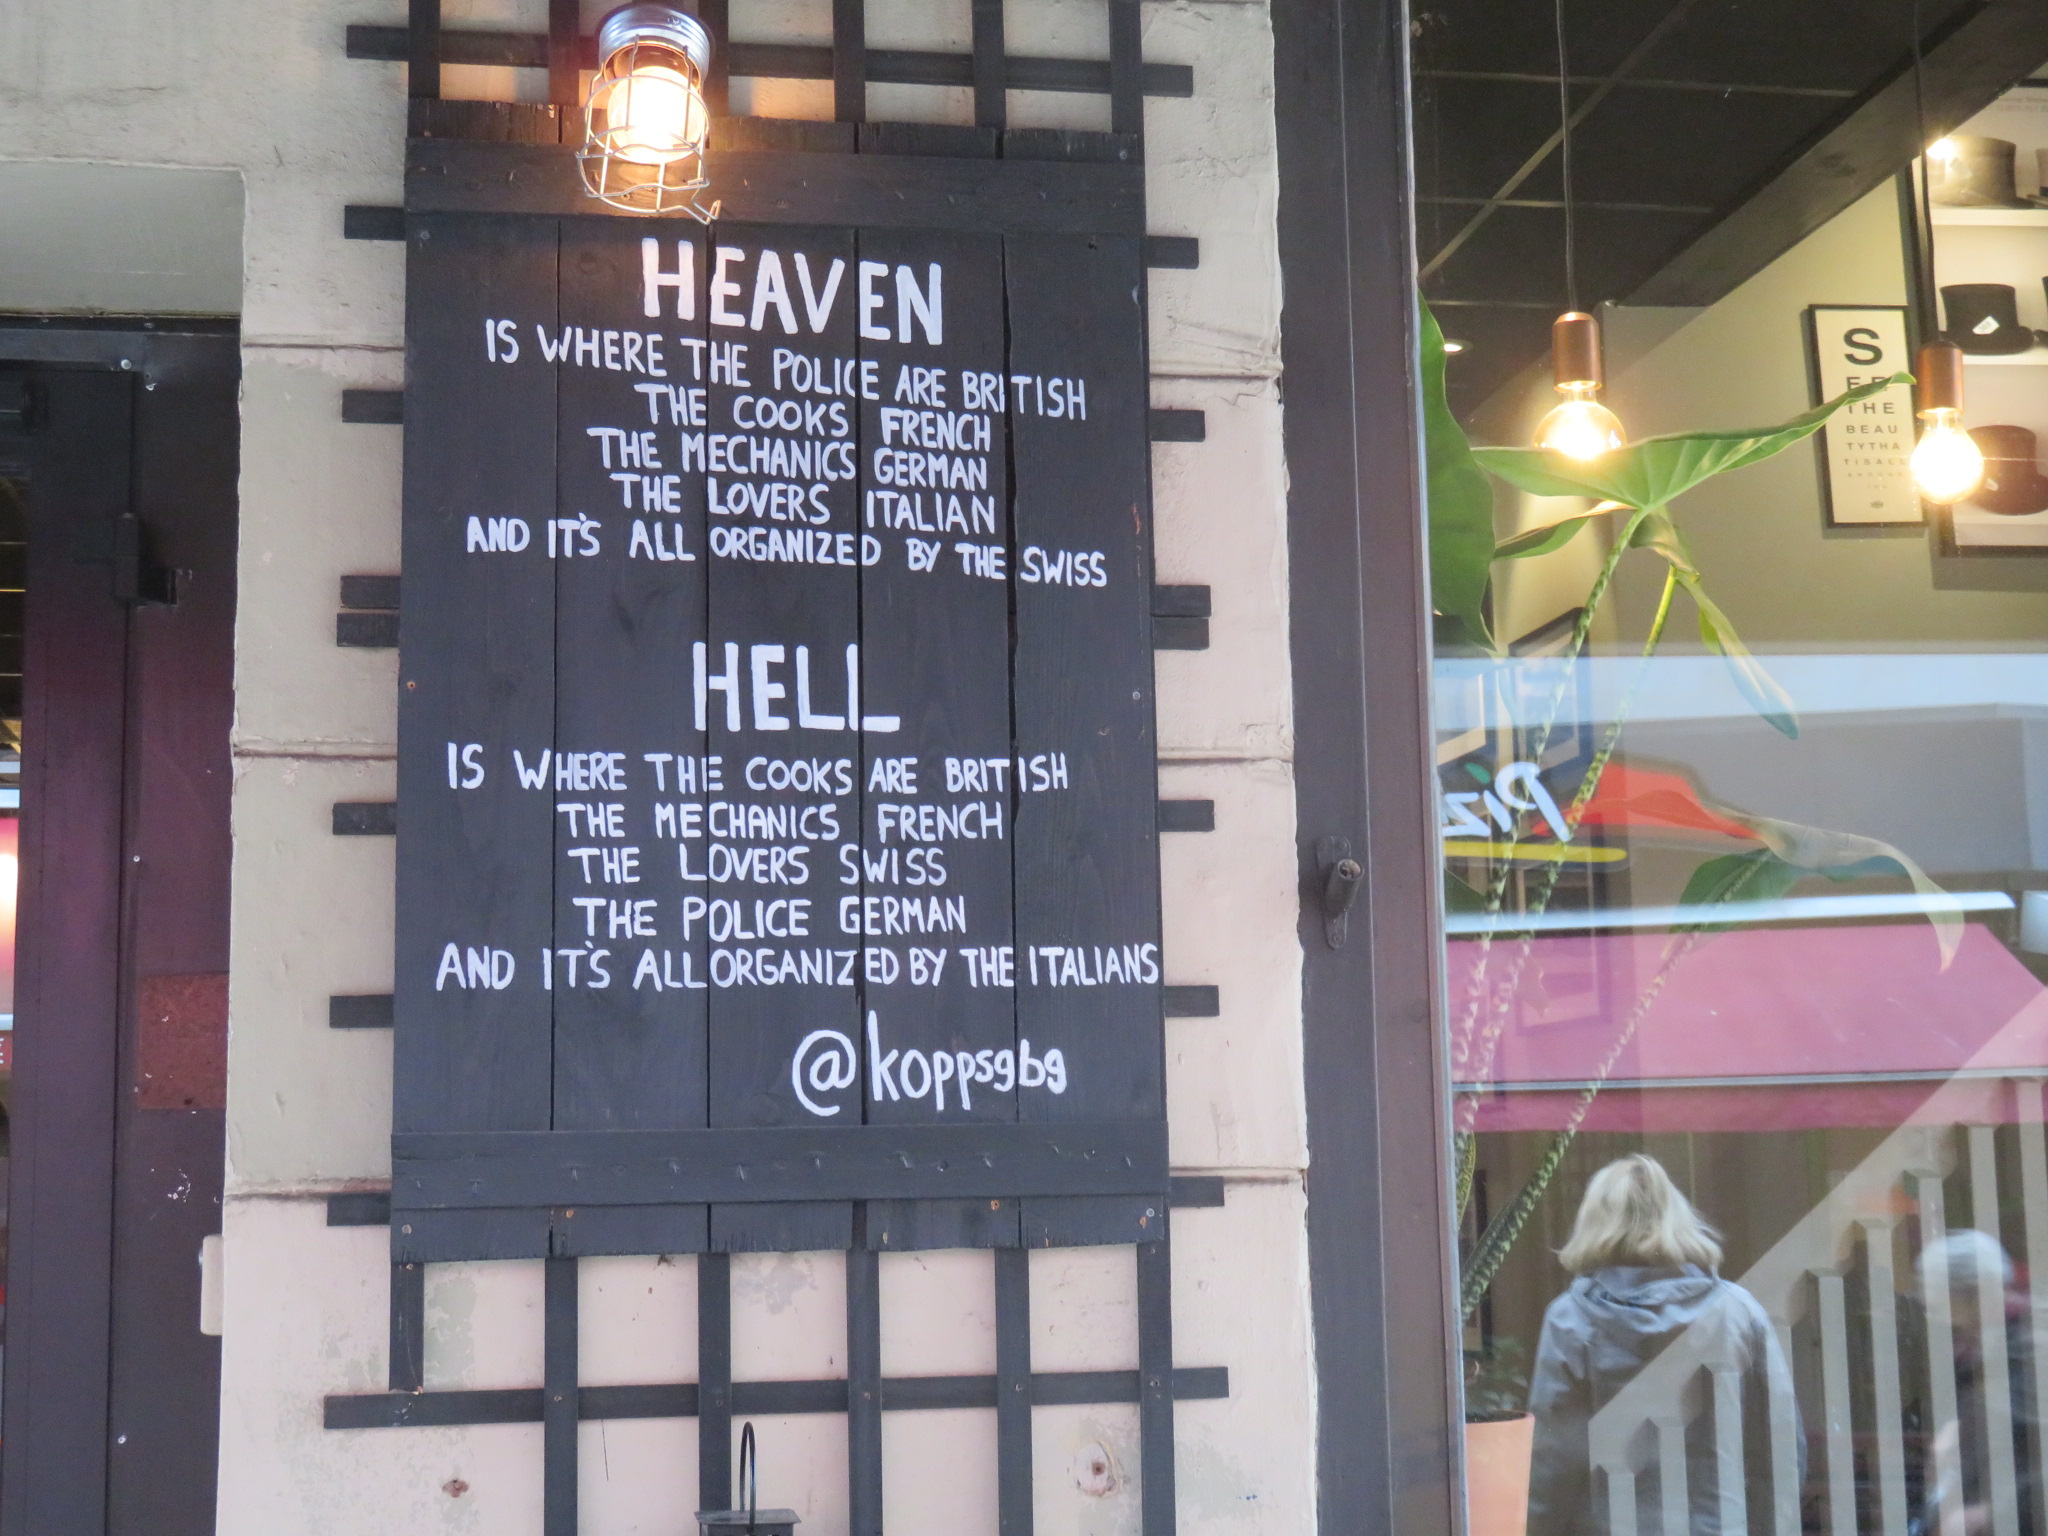 HEAVEN
IS WHERE THE POLICE ARE BRITISH
THE COOKS FRENCH
THE MECHANICS GERMAN
THE LOVERS ITALIAN
AND IT'S ALL ORGANIZED BY THE SWISS
HELL
IS WHERE THE COOKS ARE BRITISH
THE MECHANICS FRENCH
THE LOVERS SWISS
THE POLICE GERMAN
AND IT'S ALL ORGANIZED BY THE ITALIANS
@koppsgbg
S
EE
THE
BEAU
TYTHA